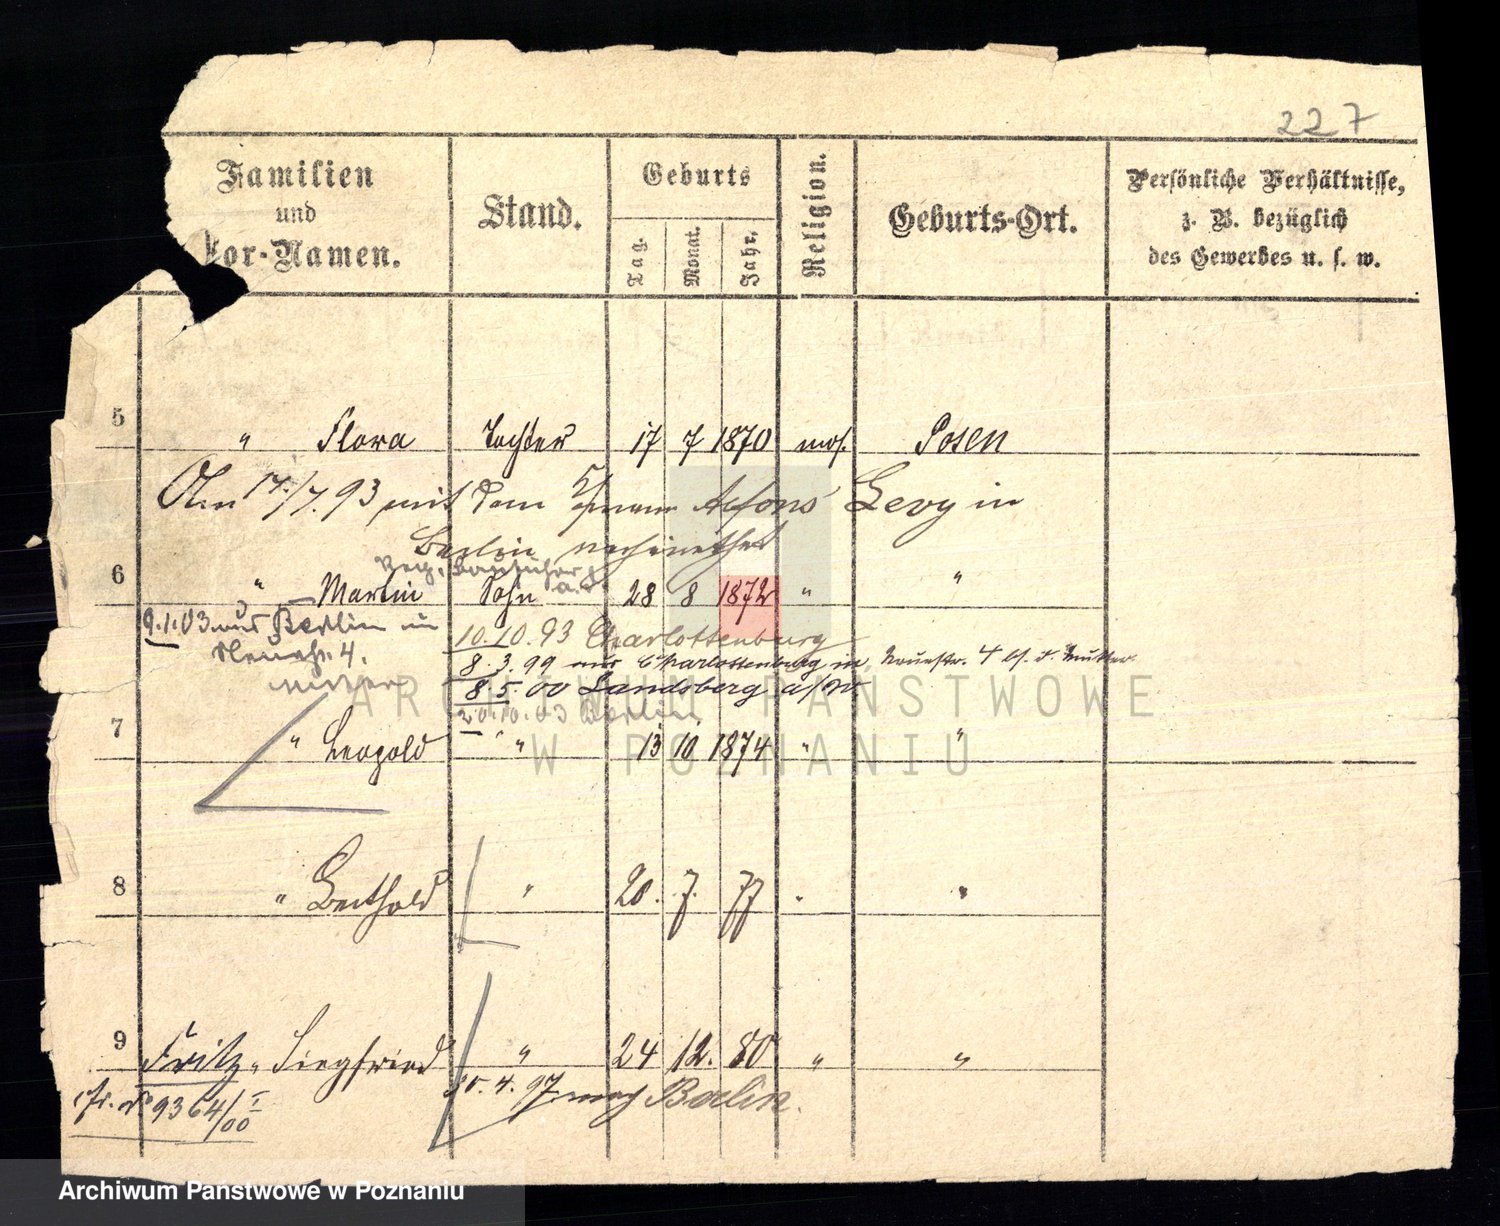 227
Familien
und
Vor-Namen.
Stand.
Geburts
Tag.
Monat.
Jahr.
Religion.
Geburts-Ort.
Persönliche Verhältnisse,
z. B. bezüglich
des Gewerbes u. s. w.
5 " Flora Tochter 17 7 1870 mos. Posen
Am 17./7. 93 mit dem Alfons Levy in
Berlin verheirathet
6 " Martin Sohn 28 8 1872 " "
9.1.03 aus Berlin in
4.
10.10.93 Charlottenburg
8.3.99 aus Charlottenburg in 4 b. d. Mutter
8.5.00 Landsberg a/W.
20.10.03 Berlin
7 " Leopold " 13 10 1874 " "
8 " Berthold " 20. 7. 77 " "
9 Fritz " Siegfried " 24 12. 80 " "
9364/00
25.4.97 nach Berlin.
ARCHIWUM PAŃSTWOWE
W POZNANIU
Archiwum Państwowe w Poznaniu